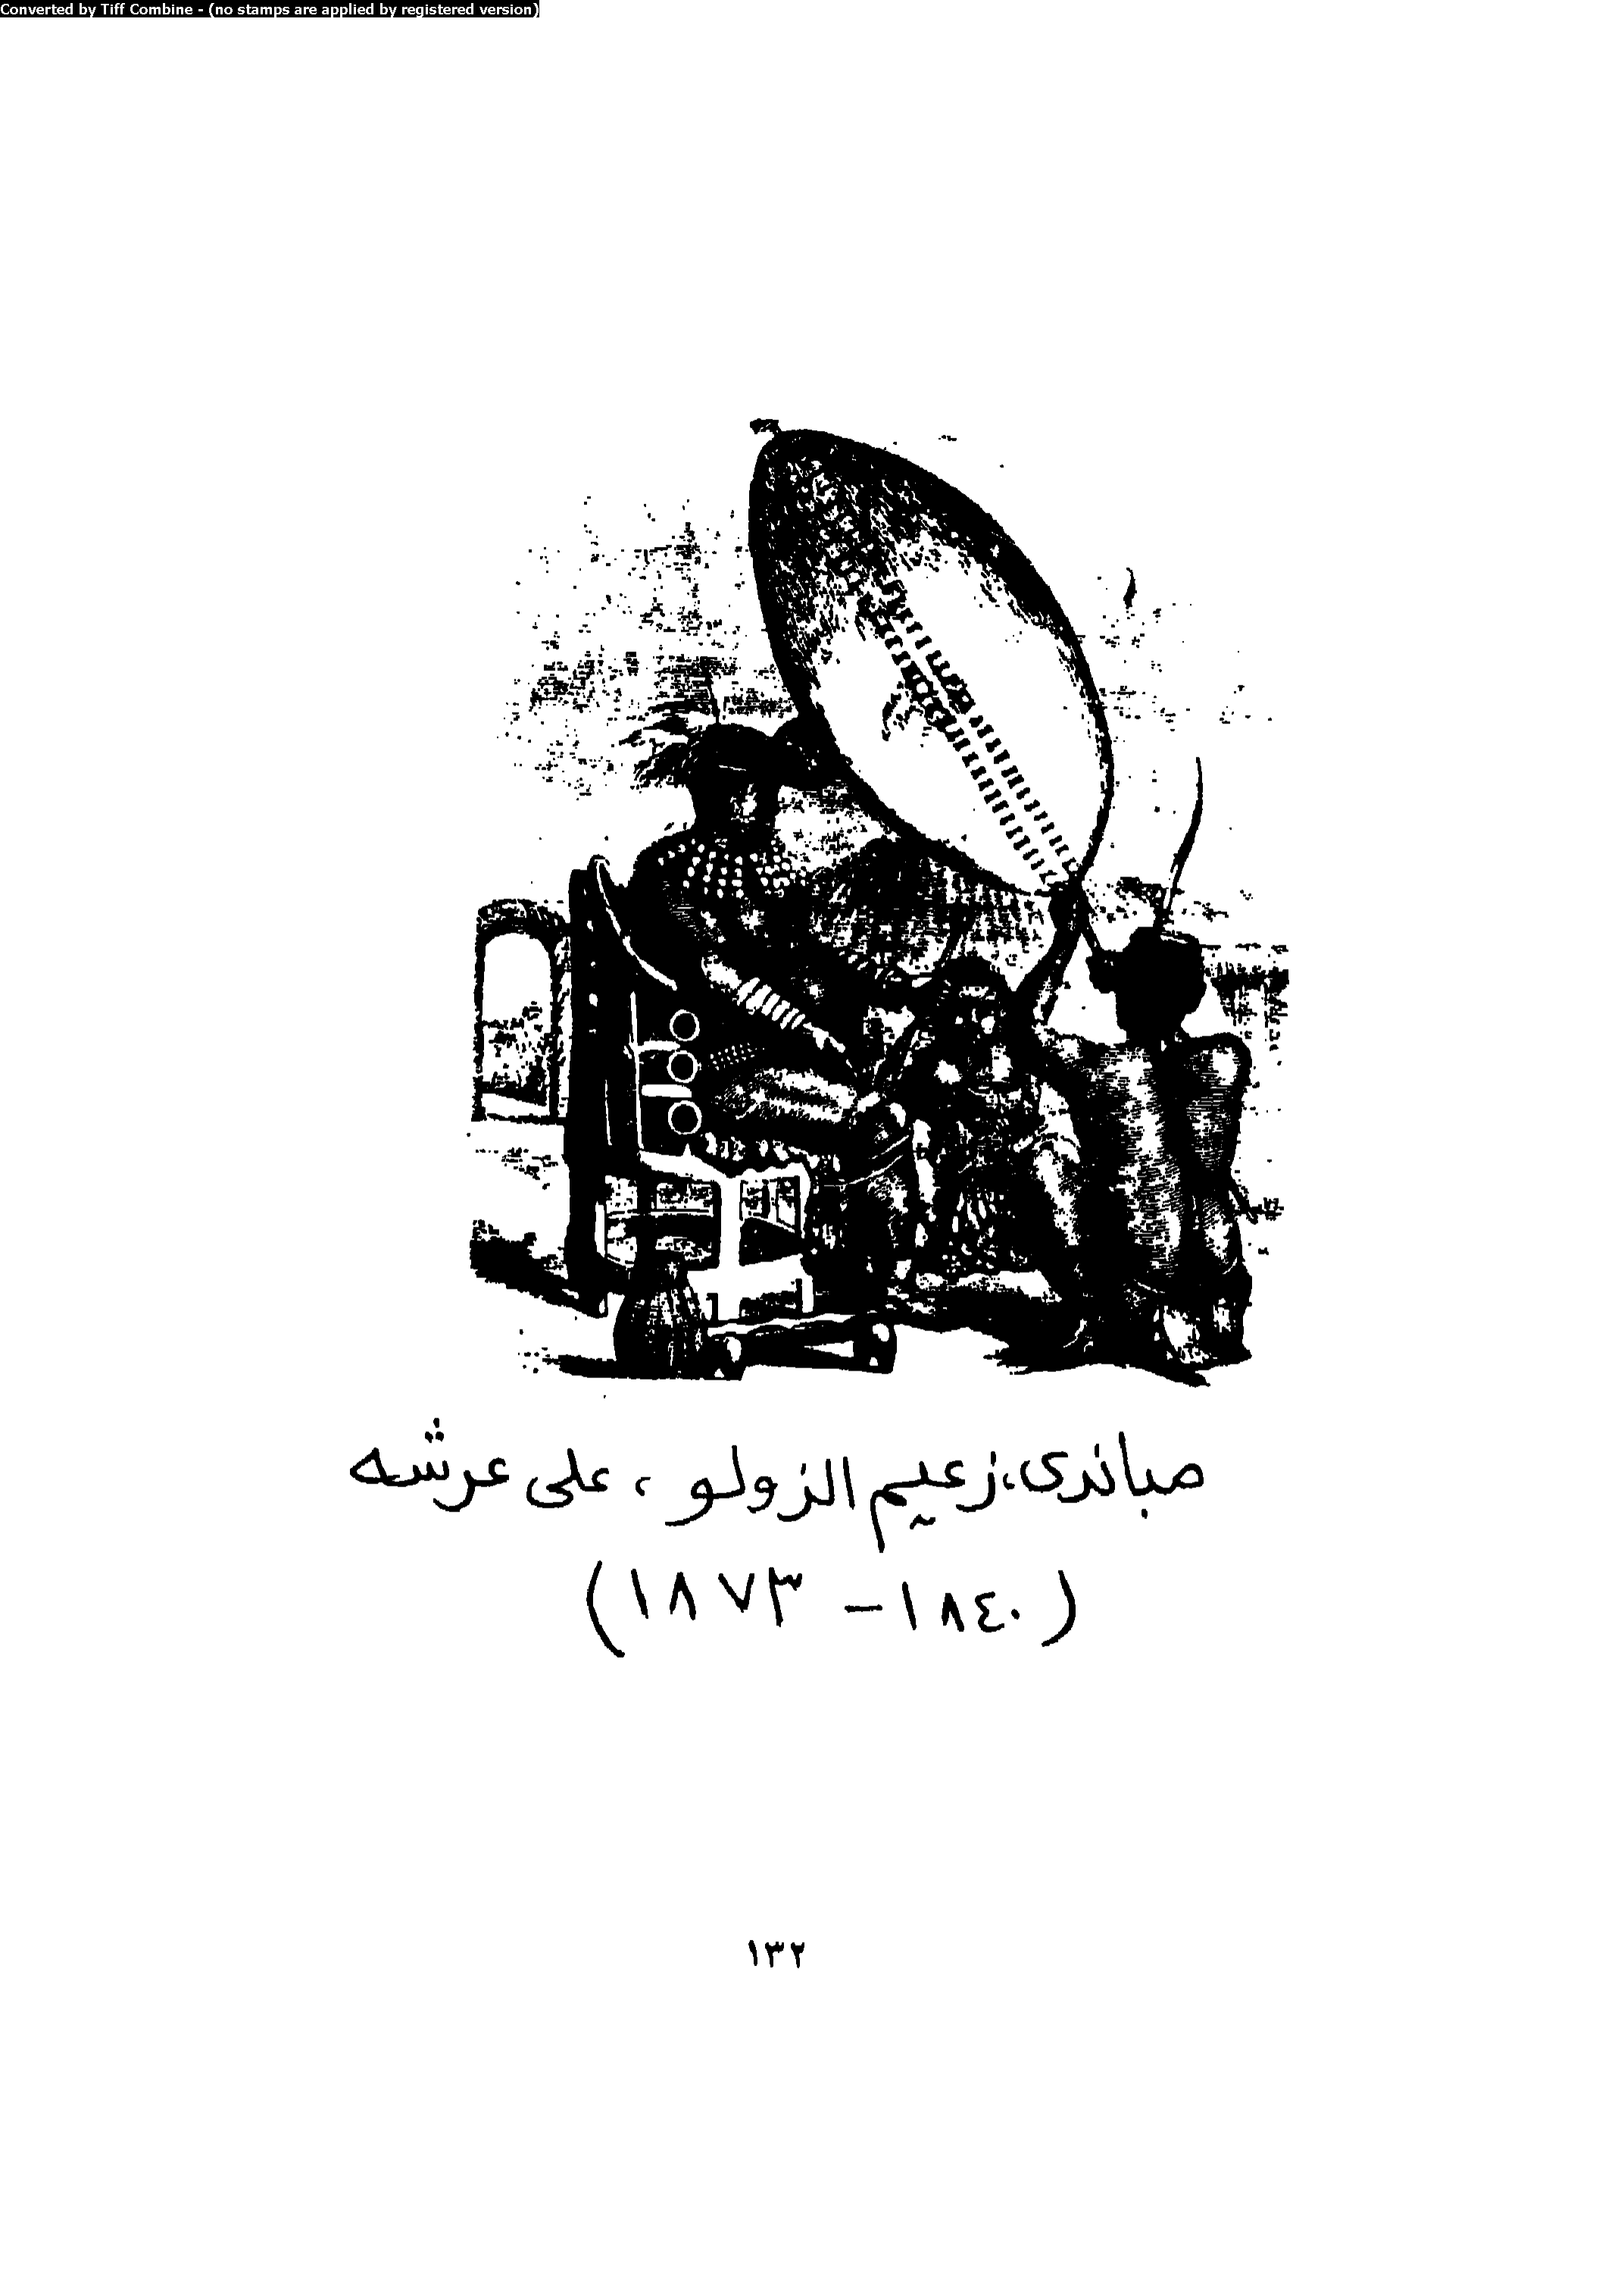 Converted by Tiff Combine - (no stamps are applied by registered version)
مباندى، زعيم الزولو، على عرشه
(١٨٤٠ - ١٨٧٣)
١٣٢